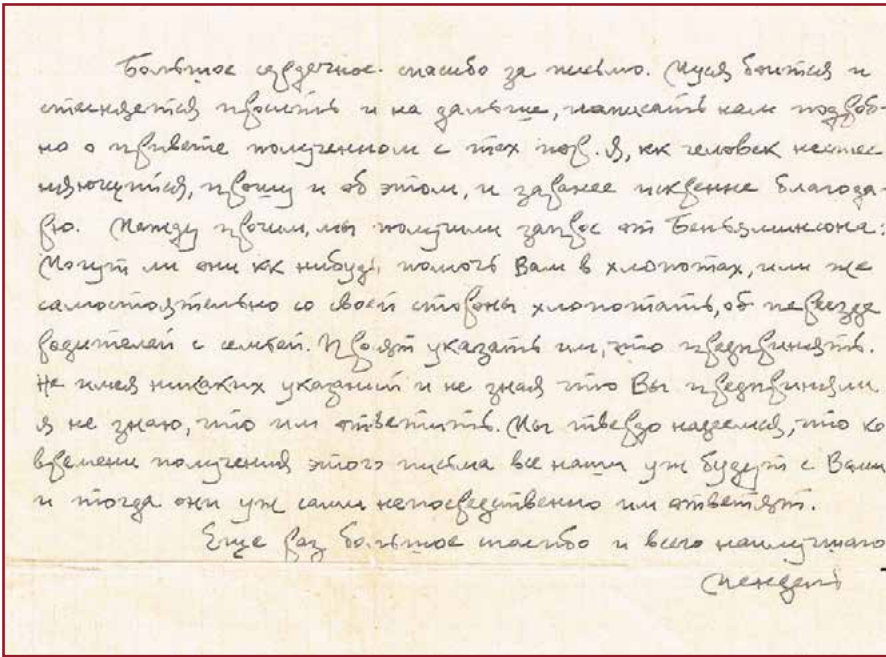 Большое сердечное спасибо за письмо. Муся боится и
стесняется просить и на дальше, написать нам подроб-
но о привете полученном с тех пор. Я, кк человек нестес-
няющийся, прошу и об этом, и заранее искренне благода-
рю. Между прочим, мы получили запрос от Беньяминсона:
Могут ли они кк нибудь помочь Вам в хлопотах, или же
самостоятельно со своей стороны хлопотать, об переезде
родителей с семьей. Просят указать им, что предпринять.
Не имея никаких указаний и не зная что Вы предприняли
я не знаю, что им ответить. Мы твердо надеемся, что ко
времени получения этого письма все наши уж будут с Вами
и тогда они уж сами непосредственно им ответят.
Еще раз большое спасибо и всего наилучшаго
Мендель